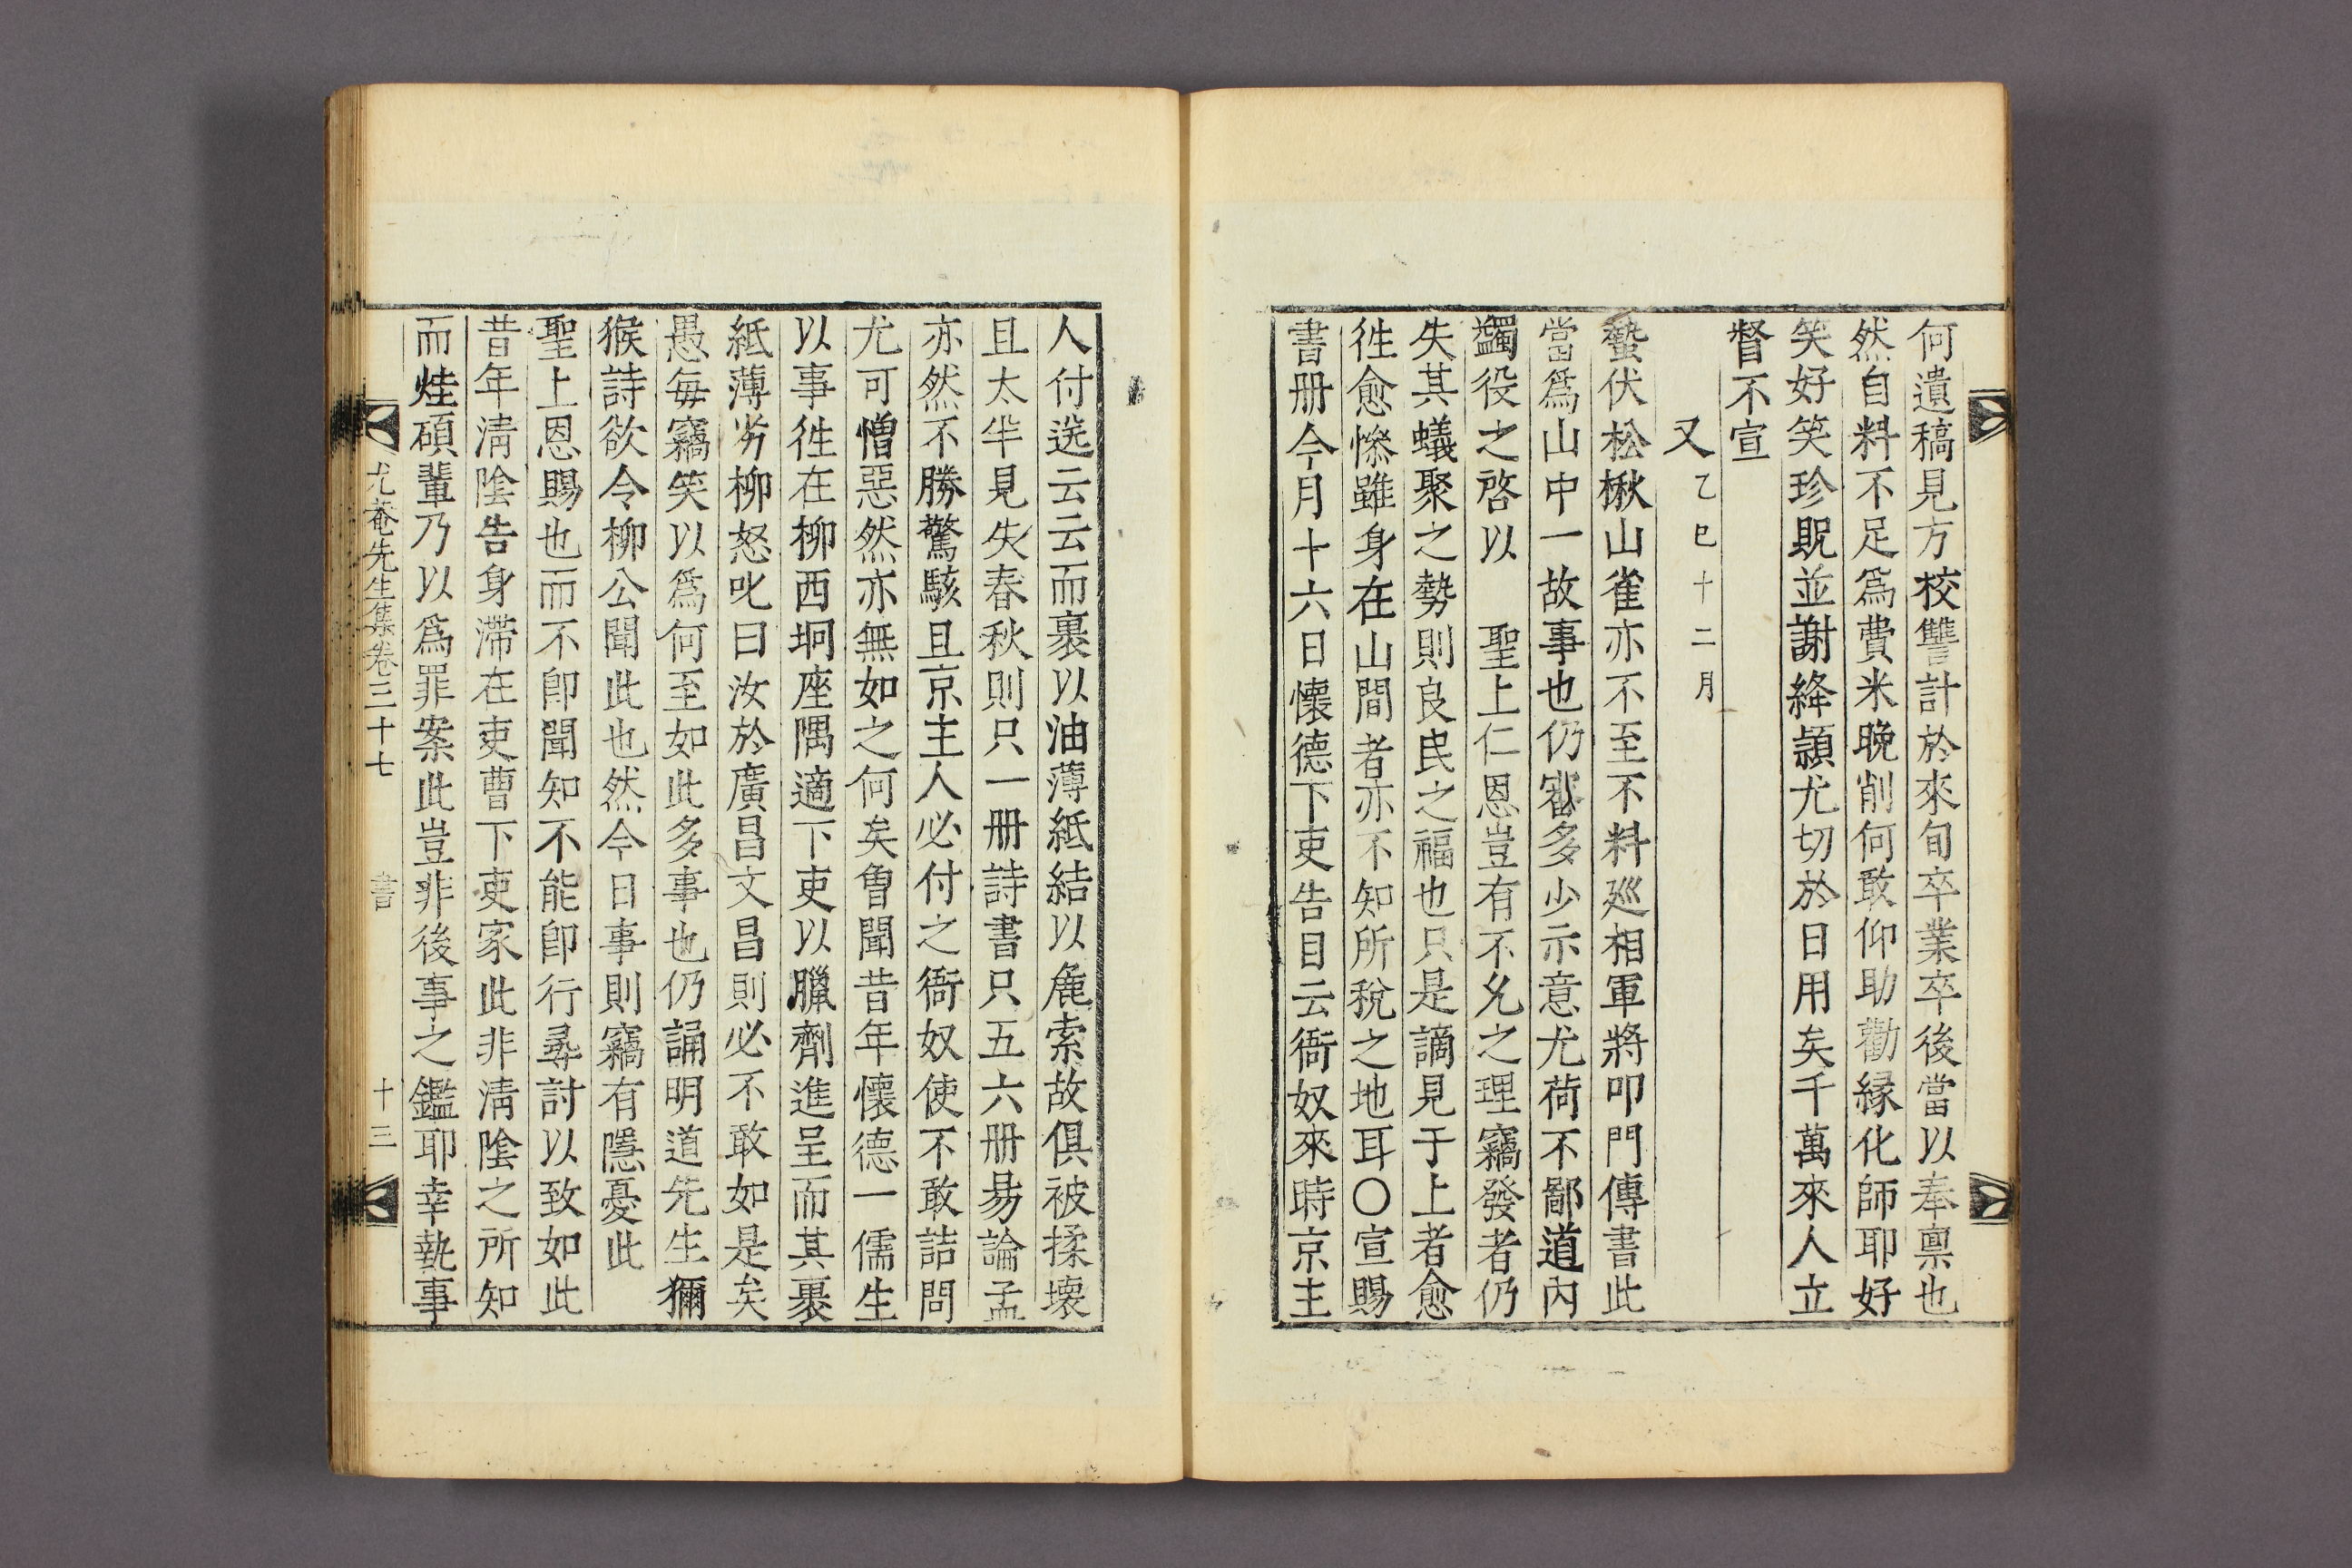 何遺稿見方校讐計於來旬卒業卒後當以奉禀也
然自料不足爲費米晚削何敢仰助勸縁化師耶好
笑好笑珍貺並謝絳頴尤切於日用矣千萬來人立
督不宣
又乙巳十二月
蟄伏松楸山雀亦不至不料巡相軍將叩門傳書此
當爲山中一故事也仍審多少示意尤荷不鄙道內
蠲役之啓以 聖上仁恩豈有不允之理竊發者仍
失其蟻聚之勢則良民之福也只是謫見于上者愈
徃愈慘雖身在山間者亦不知所稅之地耳○宣賜
書册今月十六日懷德下吏告目云衙奴來時京主
人付送云云而裹以油薄紙結以麁索故俱被揉壞
且太半見失春秋則只一册詩書只五六册昜論孟
亦然不勝驚駭且京主人必付之衙奴使不敢詰問
尤可憎惡然亦無如之何矣曾聞昔年懷德一儒生
以事徃在柳西坰座隅適下吏以臘劑進呈而其裹
紙薄劣柳怒叱曰汝於廣昌文昌則必不敢如是矣
愚每竊笑以爲何至如此多事也仍誦明道先生獼
猴詩欲令柳公聞此也然今日事則竊有隱憂此
聖上恩賜也而不卽聞知不能卽行尋討以致如此
昔年淸陰告身滯在吏曹下吏家此非淸陰之所知
而烓碩輩乃以爲罪案此豈非後事之鑑耶幸執事
尤菴先生集卷三十七 書 十三